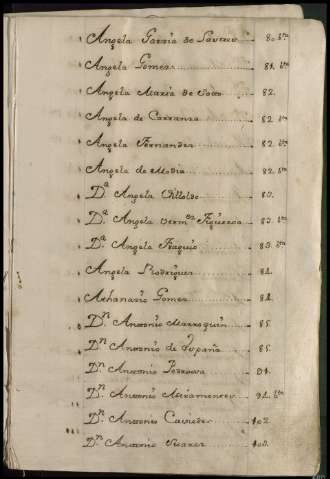 Angela Garcia de 80. bta
Angela Gomes 81. bta
Angela Maria de 82.
Angela de Carranza 82. bta
Angela Fernandes 82. bta
Angela de Media 82. bta
D.ª Angela 83.
D.ª Angela Figueroa 83. bta
D.ª Angela 83. bta
Angela Rodrigues 84.
Athanasio Gomes 84.
D.n Antonio Marroquin 85.
D.n Antonio de España 85.
D.n Antonio Pedrosa 91.
D.n Antonio 94. bta
D.n Antonio Cavieder 102.
D.n Antonio Suarez 103.